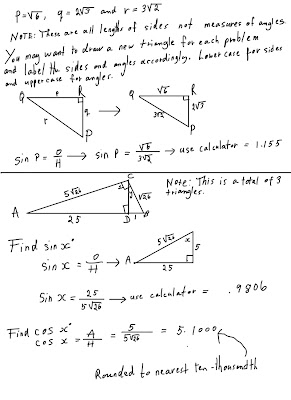 P=√6, q = 2√3 and r = 3√2
NOTE: These are all lengths of sides not measures of angles.
You may want to draw a new triangle for each problem
and label the sides and angles accordingly. Lower case for sides
and uppercase for angles.
Q P R q r P → Q √6 R 2√3 3√2 P
Sin P = O/H → sin P = √6/3√2 → use calculator = 1.155
Note: This is a total of 3
triangles.
A 5√26 C √26 25 D 1 B
Find sin x°
Sin x = O/H → A 5√26 x 5 25
Sin x = 25/5√26 → use calculator = .9806
Find cos x°
cos x = A/H = 5/5√26 = 5.1000
Rounded to nearest ten-thousandth